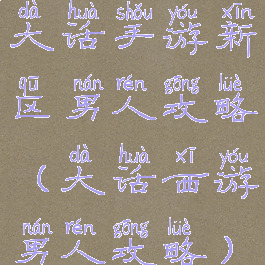 dà huà shǒu yóu xīn
大话手游新
qū nán rén gōng lüè
区男人攻略
dà huà xī yóu
（大话西游
nán rén gōng lüè
男人攻略）